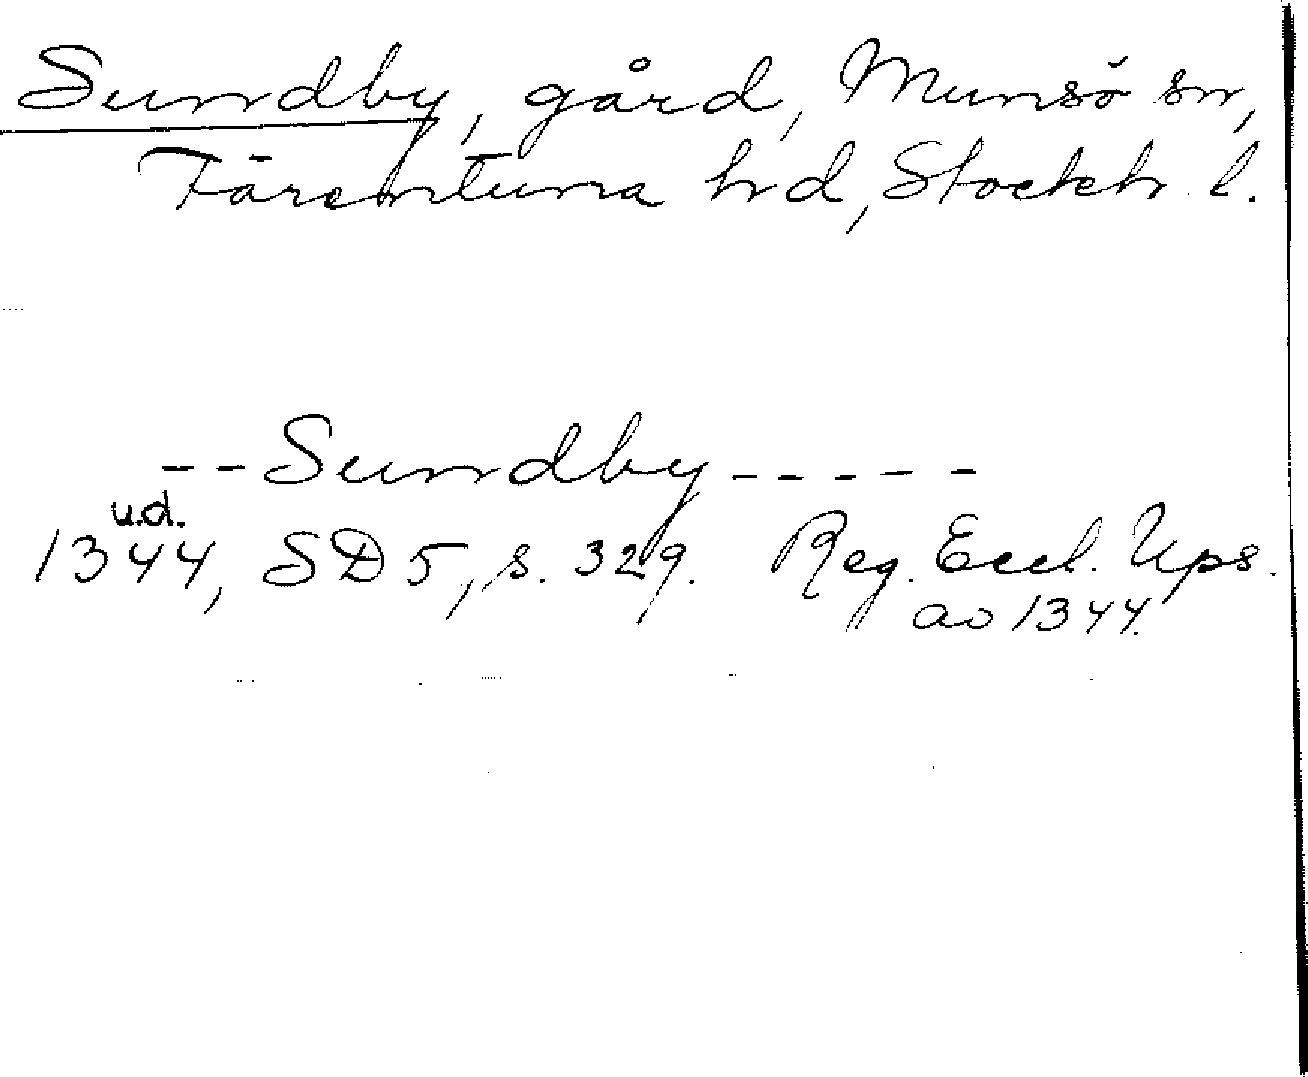 Sundby, gård, Munsö sn,
Färentuna hd, Stockh. l.
-- Sundby - - - - -
u.d.
1344, SD 5, s. 329. Reg. Eccl. Ups.
av 1344.